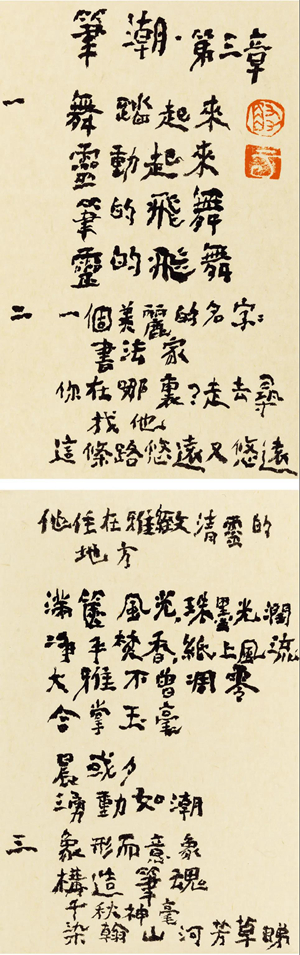 筆潮·第三章
一 舞踏起來
靈動起來
筆的飛舞
靈的飛舞
二 一個美麗的名字：
書法家
你在哪裏？走去尋
找他
這條路悠遠又悠遠
他住在雅緻清靈的
地方
滿風光，珠墨光潤
淨手焚香，紙上風流
大雅不曾凋零
合掌玉毫
晨或夕
湧動如潮
三 象形而意象
構造筆魂
千秋神毫
染翰山河芳草